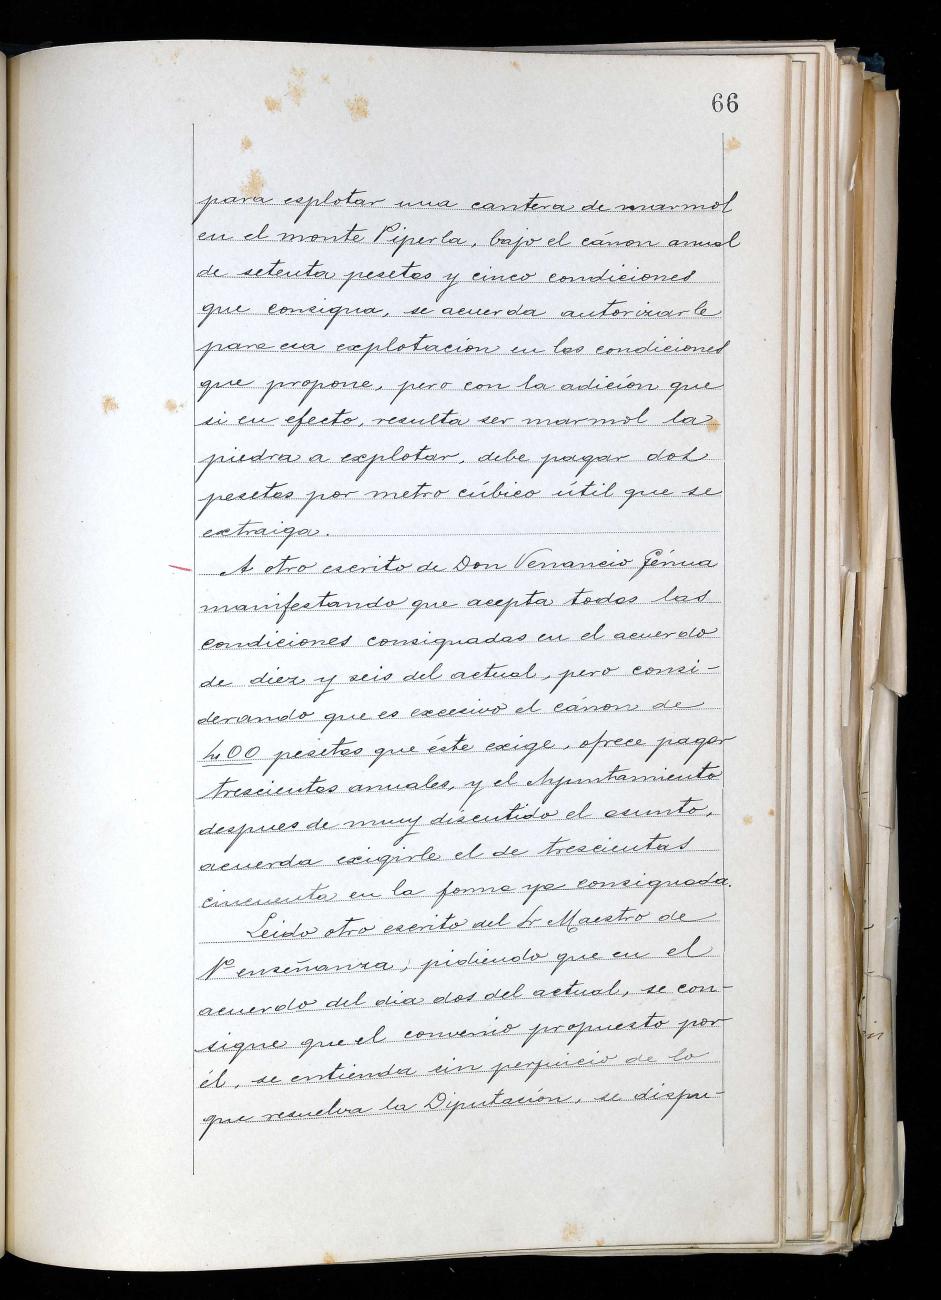 66
para esplotar una cantera de marmol
en el monte Piperla, bajo el cánon anual
de setenta pesetas y cinco condiciones
que consigna, se acuerda autorizarle
para esa explotacion en las condiciones
que propone, pero con la adición que
si en efecto, resulta ser marmol la
piedra a explotar, debe pagar dos
pesetas por metro cúbico útil que se
extraiga.
A otro escrito de Don Venancio Génua
manifestando que acepta todas las
condiciones consignadas en el acuerdo
de diez y seis del actual, pero consi-
derando que es excesivo el cánon de
400 pesetas que éste exige, ofrece pagar
trescientas anuales, y el Ayuntamiento
despues de muy discutido el asunto,
acuerda exigirle el de trescientas
cincuenta en la forma ya consignada.
Leido otro escrito del Sr Maestro de
1ª enseñanza, pidiendo que en el
acuerdo del dia dos del actual, se con-
signe que el convenio propuesto por
él, se entienda sin perjuicio de lo
que resuelva la Diputación, se dispu-